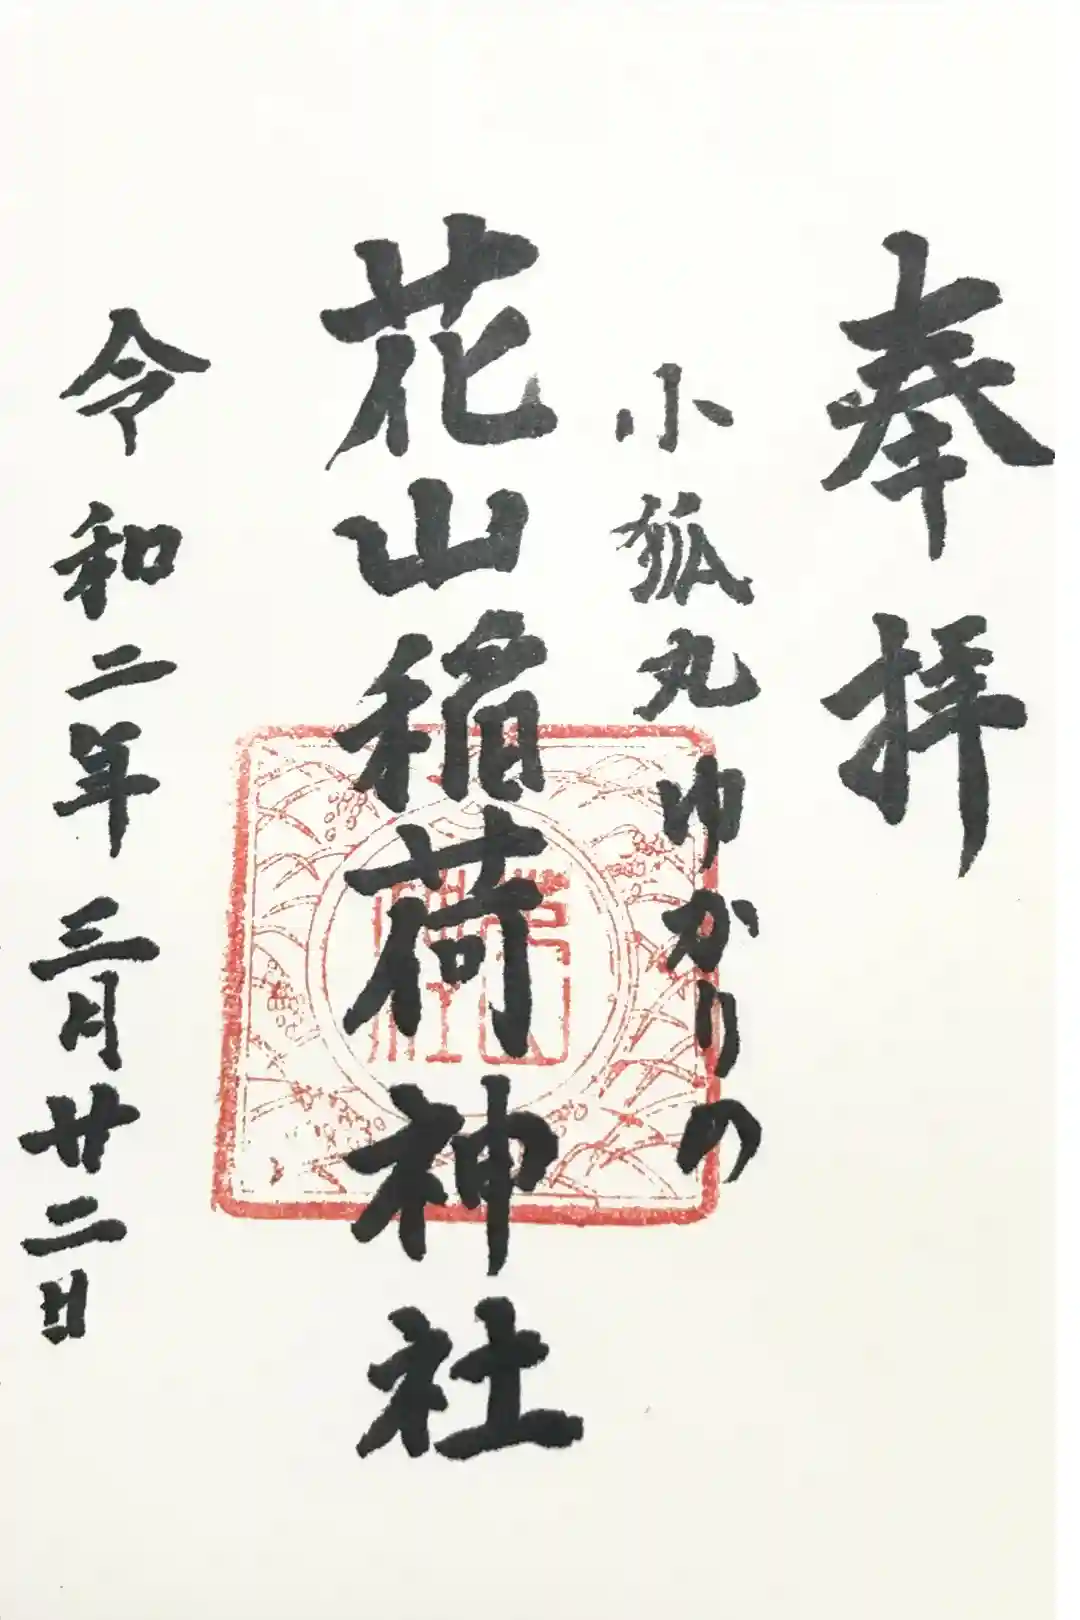 奉拝
小狐丸ゆかりの
花山稲荷神社
令和二年三月廿二日